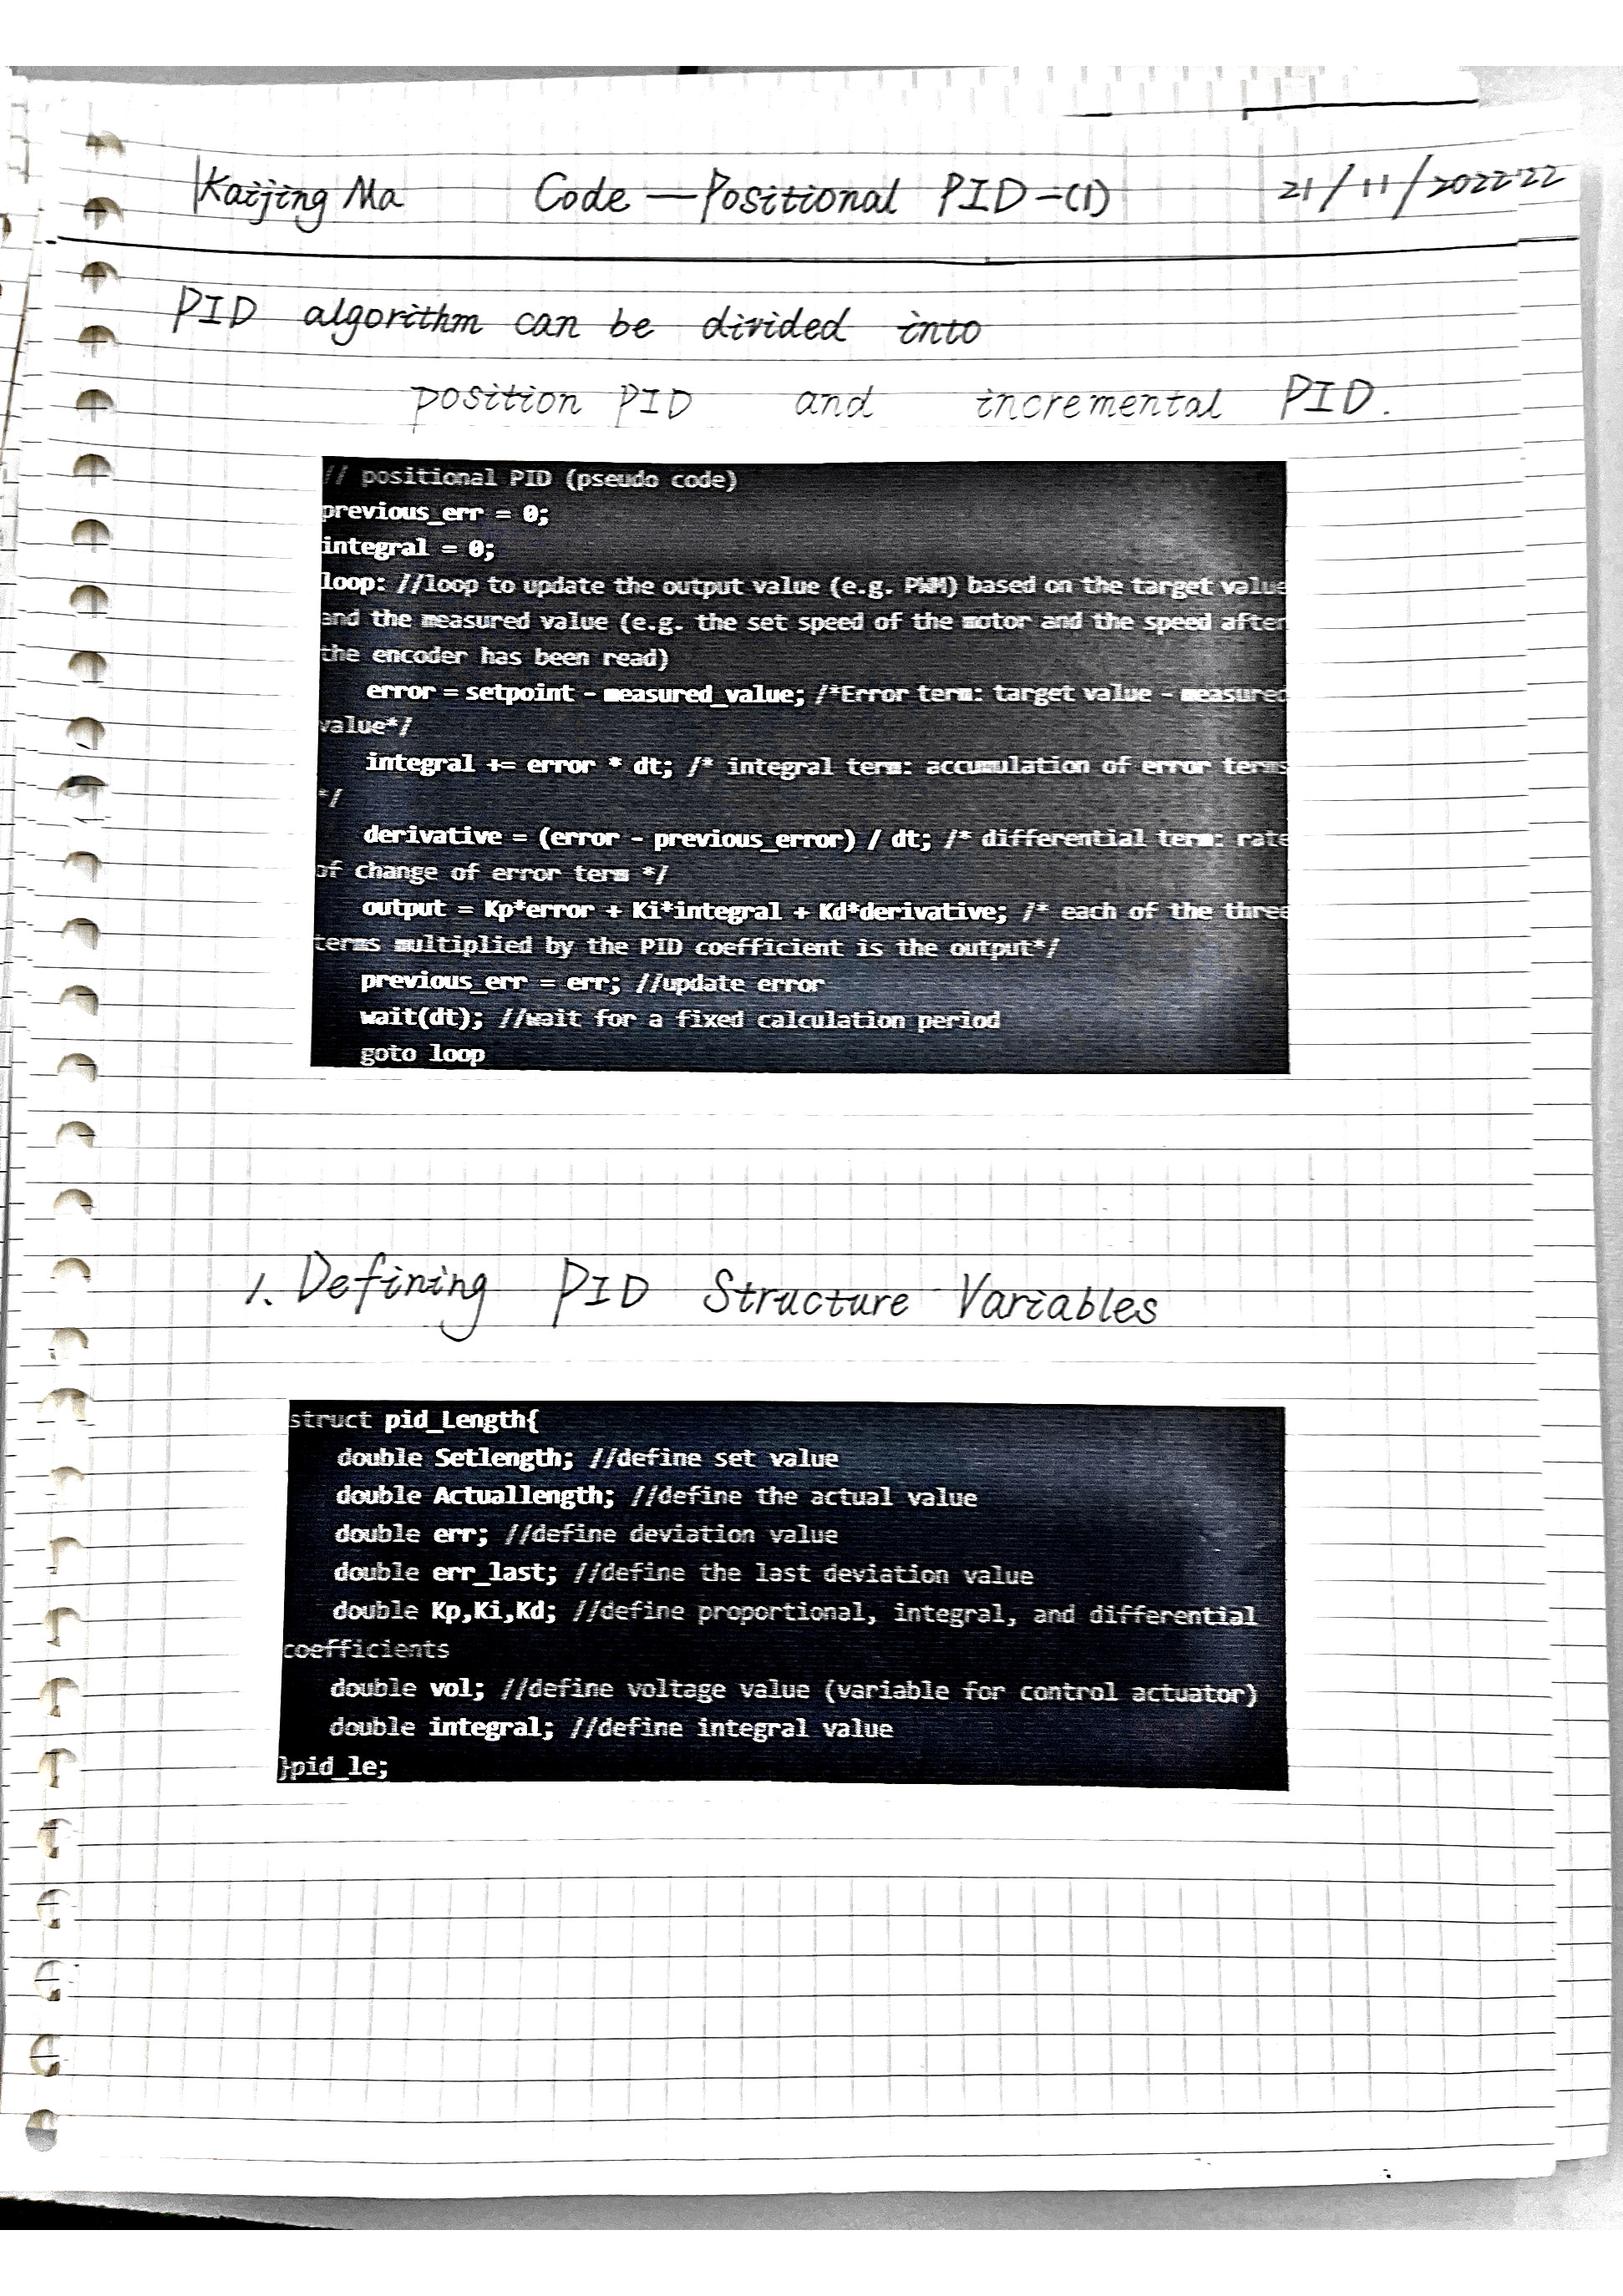 Kaijing Ma Code — Positional PID -(1) 21/11/2022
PID algorithm can be divided into
position PID and incremental PID.
// positional PID (pseudo code)
previous_err = 0;
integral = 0;
loop: //loop to update the output value (e.g. PWM) based on the target value
and the measured value (e.g. the set speed of the motor and the speed after
the encoder has been read)
error = setpoint - measured_value; /*Error term: target value - measured
value*/
integral += error * dt; /* integral term: accumulation of error terms
*/
derivative = (error - previous_error) / dt; /* differential term: rate
of change of error term */
output = Kp*error + Ki*integral + Kd*derivative; /* each of the three
terms multiplied by the PID coefficient is the output*/
previous_err = err; //update error
wait(dt); //wait for a fixed calculation period
goto loop
1. Defining PID Structure Variables
struct pid_Length{
double Setlength; //define set value
double Actuallength; //define the actual value
double err; //define deviation value
double err_last; //define the last deviation value
double Kp,Ki,Kd; //define proportional, integral, and differential
coefficients
double vol; //define voltage value (variable for control actuator)
double integral; //define integral value
}pid_le;